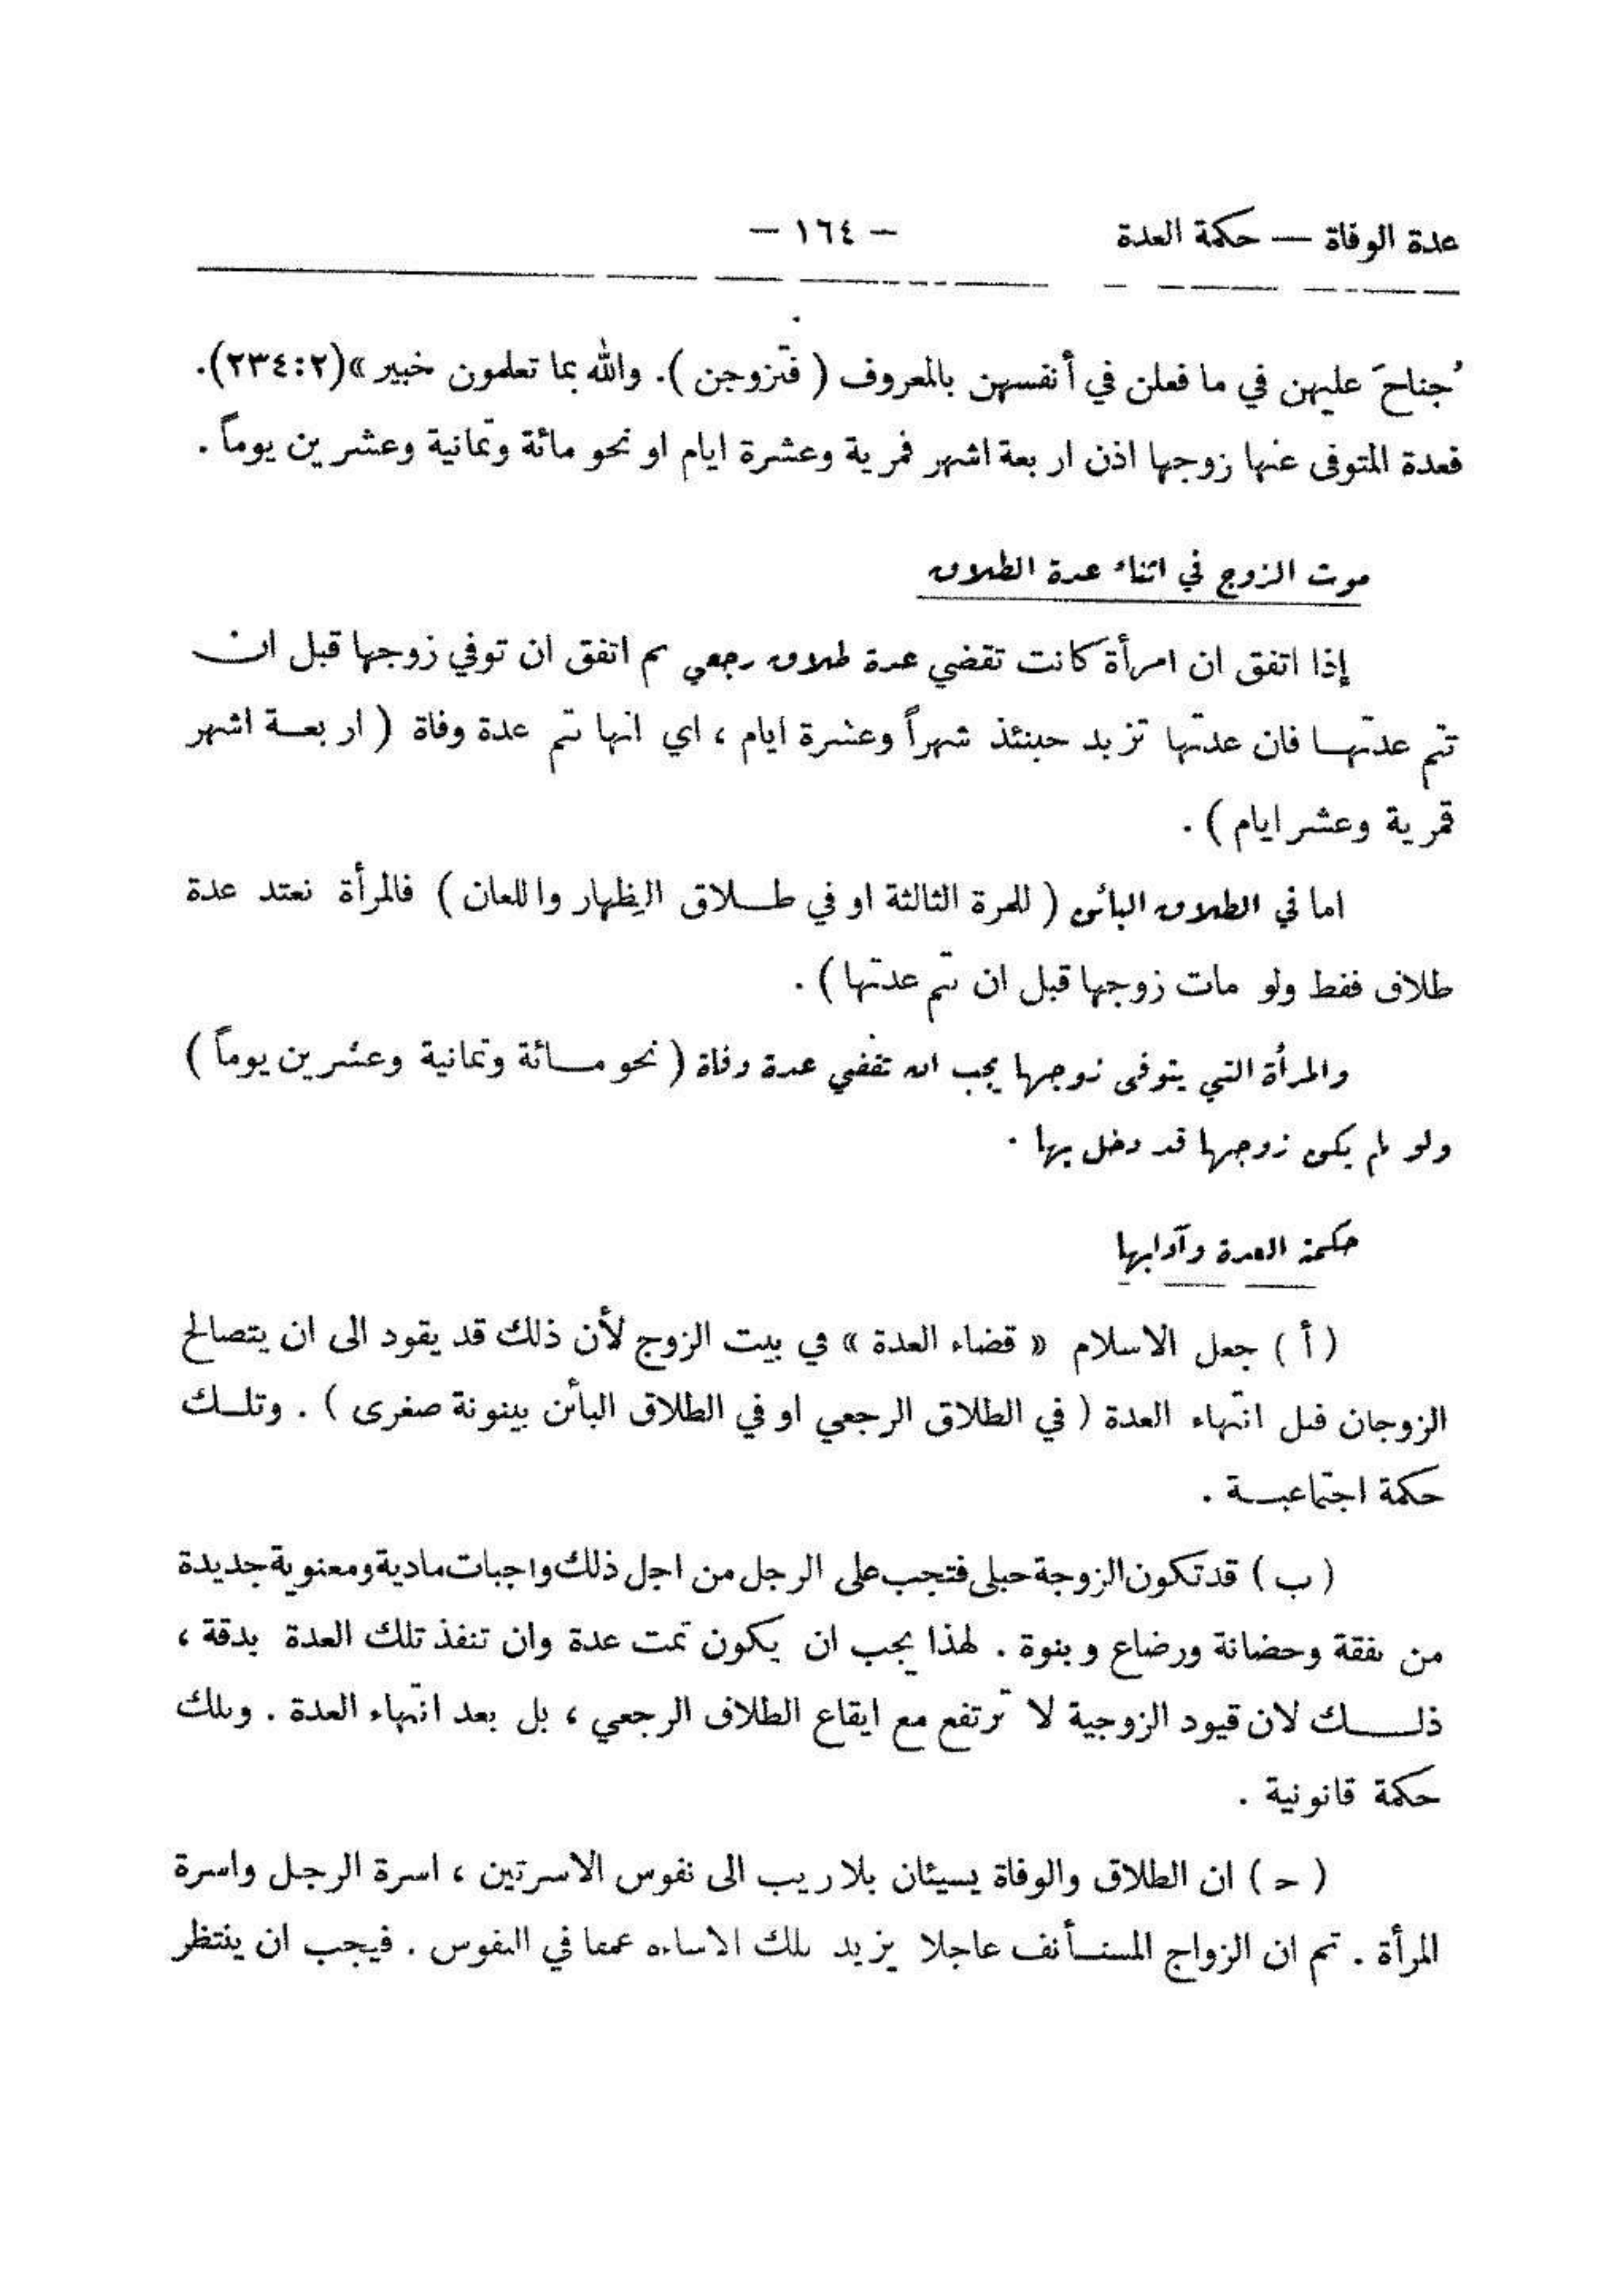 عدة الوفاة — حكمة العدة — ١٦٤ —
جُناحَ عليهن في ما فعلن في أنفسهن بالمعروف ( فتزوجن ). والله بما تعلمون خبير »(٢٣٤:٢).
فعدة المتوفى عنها زوجها اذن اربعة اشهر قمرية وعشرة ايام او نحو مائة وثمانية وعشرين يوماً .
موت الزوج في اثناء عدة الطلاق
إذا اتفق ان امرأة كانت تقضي عدة طلاق رجعي ثم اتفق ان توفي زوجها قبل ان
تتم عدتهـا فان عدتها تزيد حينئذ شهراً وعشرة ايام ، اي انها تتم عدة وفاة ( اربعـة اشهر
قمرية وعشر ايام ) .
اما في الطلاق البائن ( للمرة الثالثة او في طـلاق الظهار واللعان ) فالمرأة تعتد عدة
طلاق فقط ولو مات زوجها قبل ان تتم عدتها ) .
والمرأة التي يتوفى زوجها يجب ان تقضي عدة وفاة ( نحو مـائة وثمانية وعشرين يوماً )
ولو لم يكن زوجها قد دخل بها .
حكمة العدة وآدابها
( أ ) جعل الاسلام « قضاء العدة » في بيت الزوج لأن ذلك قد يقود الى ان يتصالح
الزوجان قبل انتهاء العدة ( في الطلاق الرجعي او في الطلاق البائن بينونة صغرى ) . وتلـك
حكمة اجتماعيـة .
( ب ) قد تكون الزوجة حبلى فتجب على الرجل من اجل ذلك واجبات مادية ومعنوية جديدة
من نفقة وحضانة ورضاع وبنوة . لهذا يجب ان يكون تمت عدة وان تنفذ تلك العدة بدقة ،
ذلـك لان قيود الزوجية لا ترتفع مع ايقاع الطلاق الرجعي ، بل بعد انتهاء العدة . وتلك
حكمة قانونية .
( حـ ) ان الطلاق والوفاة يسيئان بلا ريب الى نفوس الاسرتين ، اسرة الرجل واسرة
المرأة . ثم ان الزواج المستـأنف عاجلا يزيد تلك الاساءة عمقا في النفوس . فيجب ان ينتظر